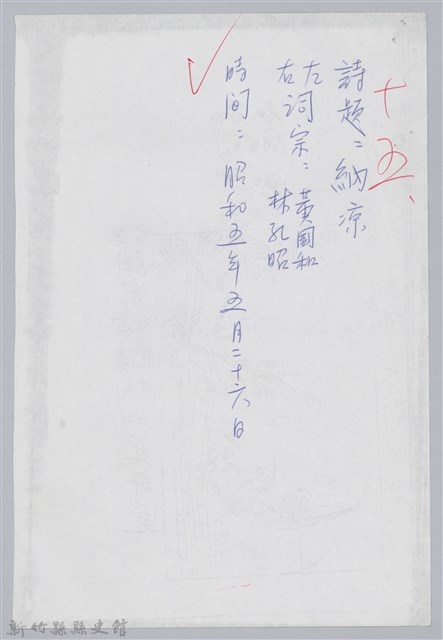 十五、
詩題：納凉
左詞宗：黃國和
右詞宗：林孔昭
時间：昭和五年五月二十六日
新竹縣縣史館